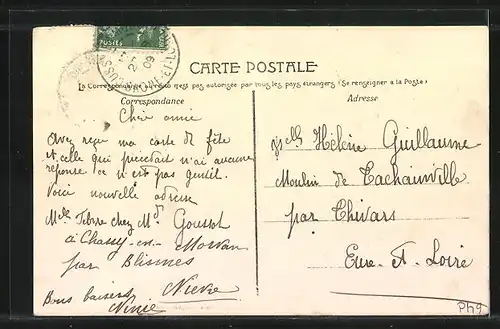 POSTES
09
CARTE POSTALE
La Correspondance au recto n'est pas autorisée par tous les pays étrangers (Se renseigner à la Poste)
Correspondance
Adresse
Chère amie
Avez reçu ma carte de fête
et celle qui précédait n'ai aucune
réponse ce n'est pas gentil.
Voici nouvelle adresse
Melle Febre chez Md Goussot
à Chassy-en-Morvan
par Blismes
Nièvre
Bons baisers
Ninie
Melle Hélène Guillaume
Moulin de Tachainville
par Thivars
Eure-et-Loire
Ph9